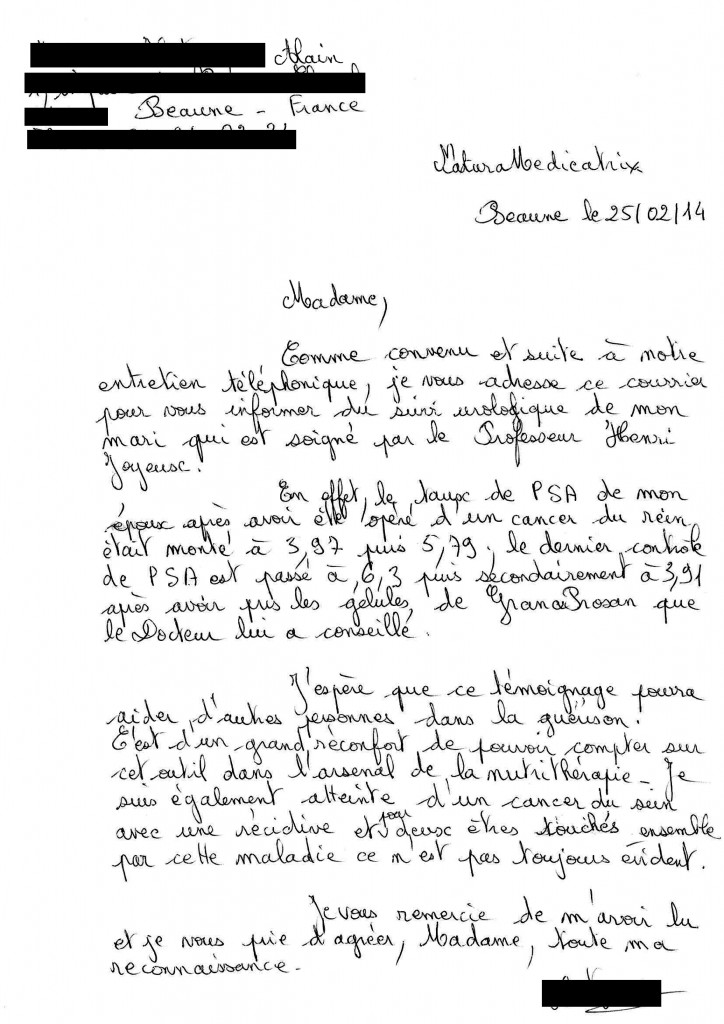 Alain
Beaune - France
NaturaMedicatrix
Beaune le 25/02/14
Madame,
Comme convenu et suite à notre
entretien téléphonique, je vous adresse ce courrier
pour vous informer du suivi urologique de mon
mari qui est soigné par le Professeur Henri
Joyeux.
En effet, le taux de PSA de mon
époux après avoir été opéré d'un cancer du rein
était monté à 3,97 puis 5,79, le dernier contrôle
de PSA est passé à 6,3 puis secondairement à 3,91
après avoir pris les gélules de GranaProsan que
le Docteur lui a conseillé.
J'espère que ce témoignage pourra
aider d'autres personnes dans la guérison.
C'est d'un grand réconfort de pouvoir compter sur
cet outil dans l'arsenal de la nutrithérapie - Je
suis également atteinte d'un cancer du sein
avec une récidive et pour deux êtres touchés ensemble
par cette maladie ce n'est pas toujours évident.
Je vous remercie de m'avoir lu
et je vous prie d'agréer, Madame, toute ma
reconnaissance -